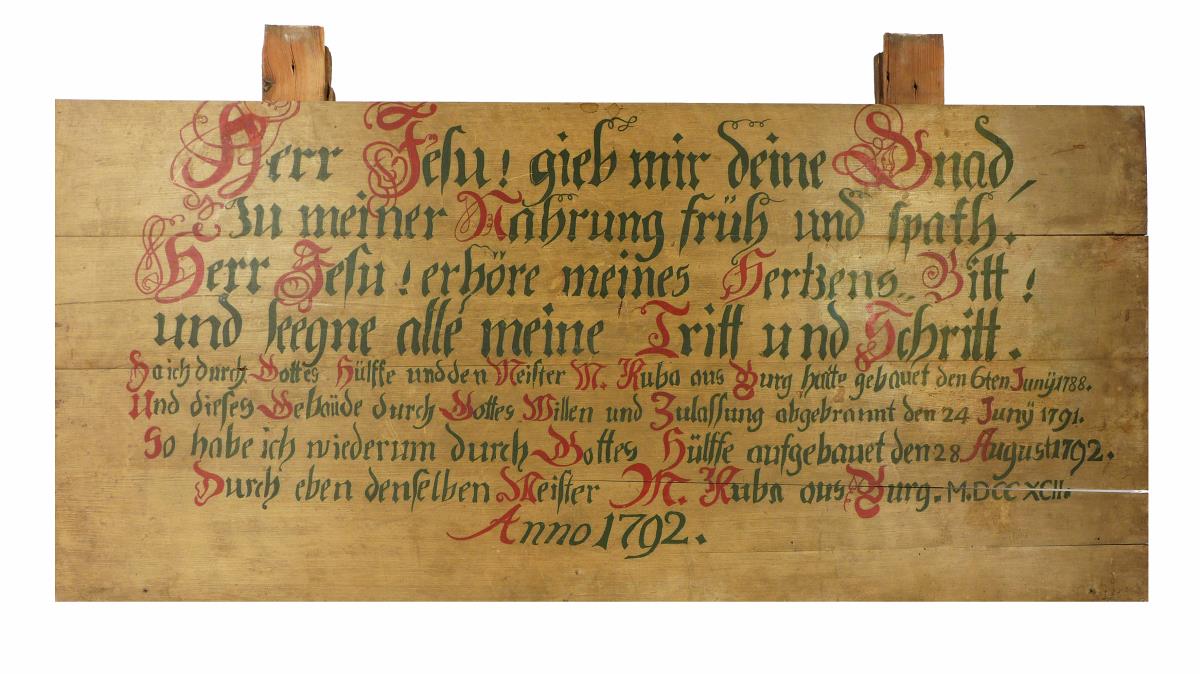 Herr Jesu! gieb mir deine Gnad,
Zu meiner Nahrung früh und spath.
Herr Jesu! erhöre meines Hertzens Bitt!
und seegne alle meine Tritt und Schritt.
Da ich durch Gottes Hülffe und den Meister M. Kuba aus Burg hatte gebauet den 6ten Junÿ 1788.
Und dieses Gebäude durch Gottes Willen und Zulassung abgebrannt den 24 Junÿ 1791.
So habe ich wiederum durch Gottes Hülffe aufgebauet den 28 August 1792.
Durch eben denselben Meister M. Kuba aus Burg. M.DCC XCII.
Anno 1792.